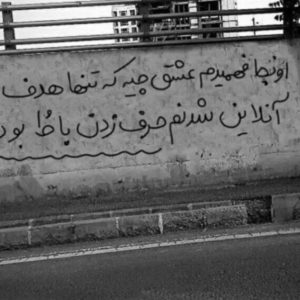 اونجا فهمیدم عشق چیه که تنها هدف
آنلاین شدنم حرف زدن باهاش بود